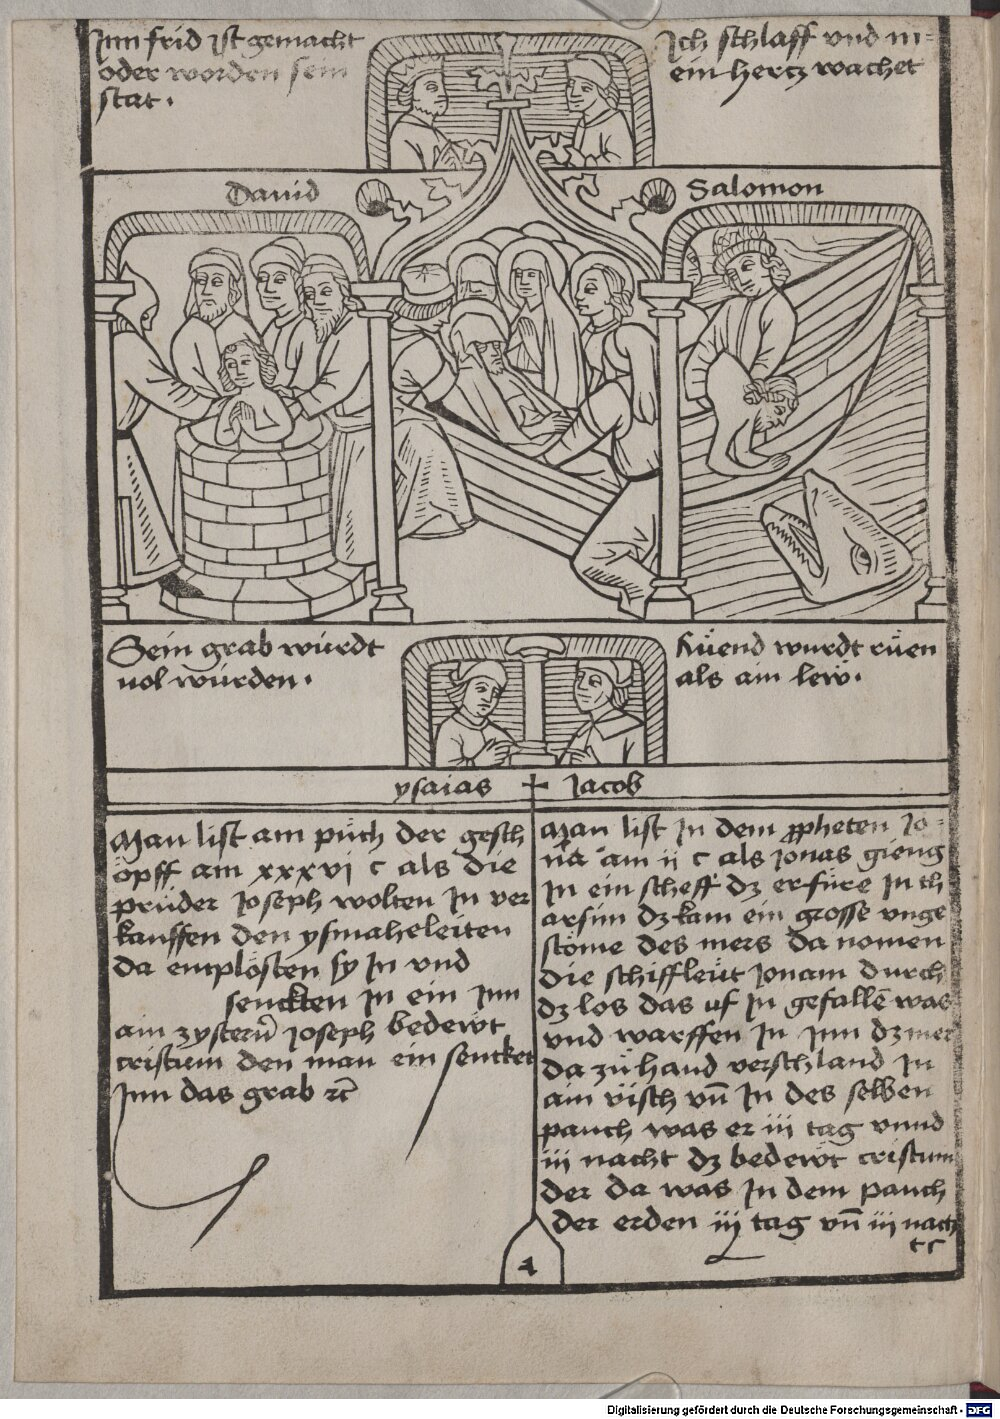 Inn frid ist gemacht
oder worden sein
stat .
Ich schlaff vnd m=
ein hertz wachet
Dauid
Salomon
Sein grab würdt
uol würden .
Rüend wurdt rüen
als ain lew .
ysaias + Jacob
Man list am püch der gesch
öpff am xxxvi c als die
prüder Joseph wolten In ver
kauffen den ysmaheleiten
da emplösten sy In vnd
senckten In ein Inn
ain zystern̄ Joseph bedewt
cristum den man ein sencket
Inn das grab ⁊c̄
Man list In dem ꝓpheten Jo=
na am ii c als Jonas gieng
In ein scheff dz er füre In th
arsim dz kam ein grosse vnge
stöme des mers da nomen
die schiffleüt Jonam durch
dz los das uf In gefallē was
vnd warffen In Inn dz mer
da zühand verschland In
ain visch vn̄ In des selben
pauch was er iii tag vnnd
iii nacht dz bedewt cristum
der da was In dem pauch
der erden iii tag vn̄ iii nacht
⁊c
4
Digitalisierung gefördert durch die Deutsche Forschungsgemeinschaft - DFG